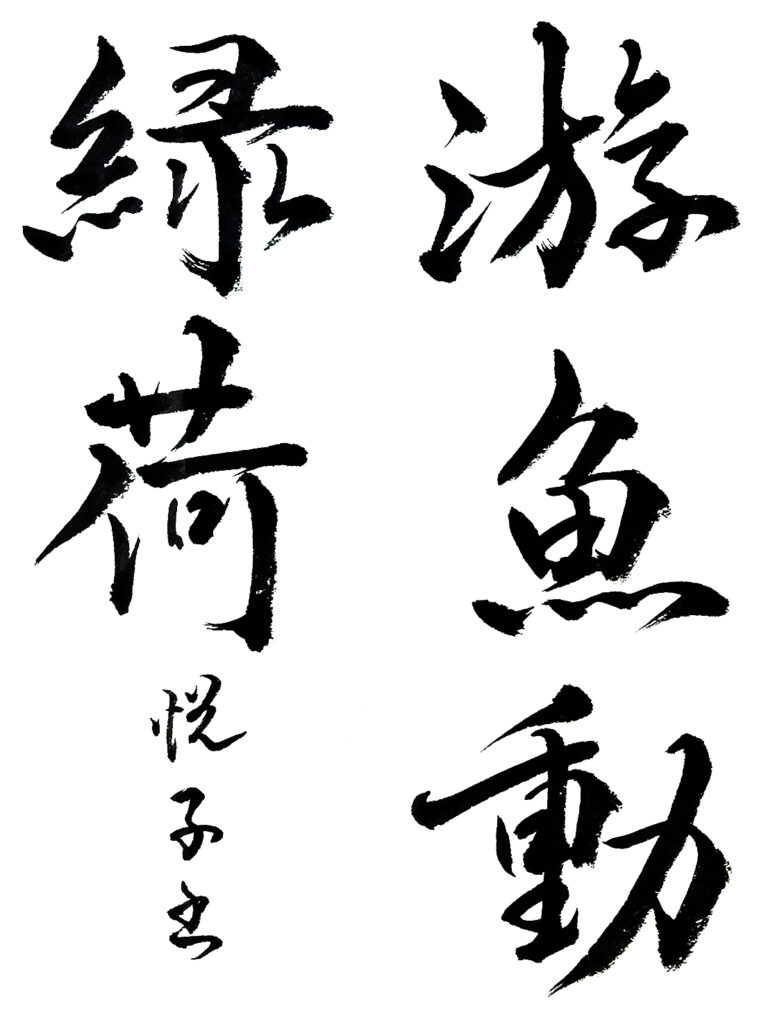 游魚動
緑荷
悦子書